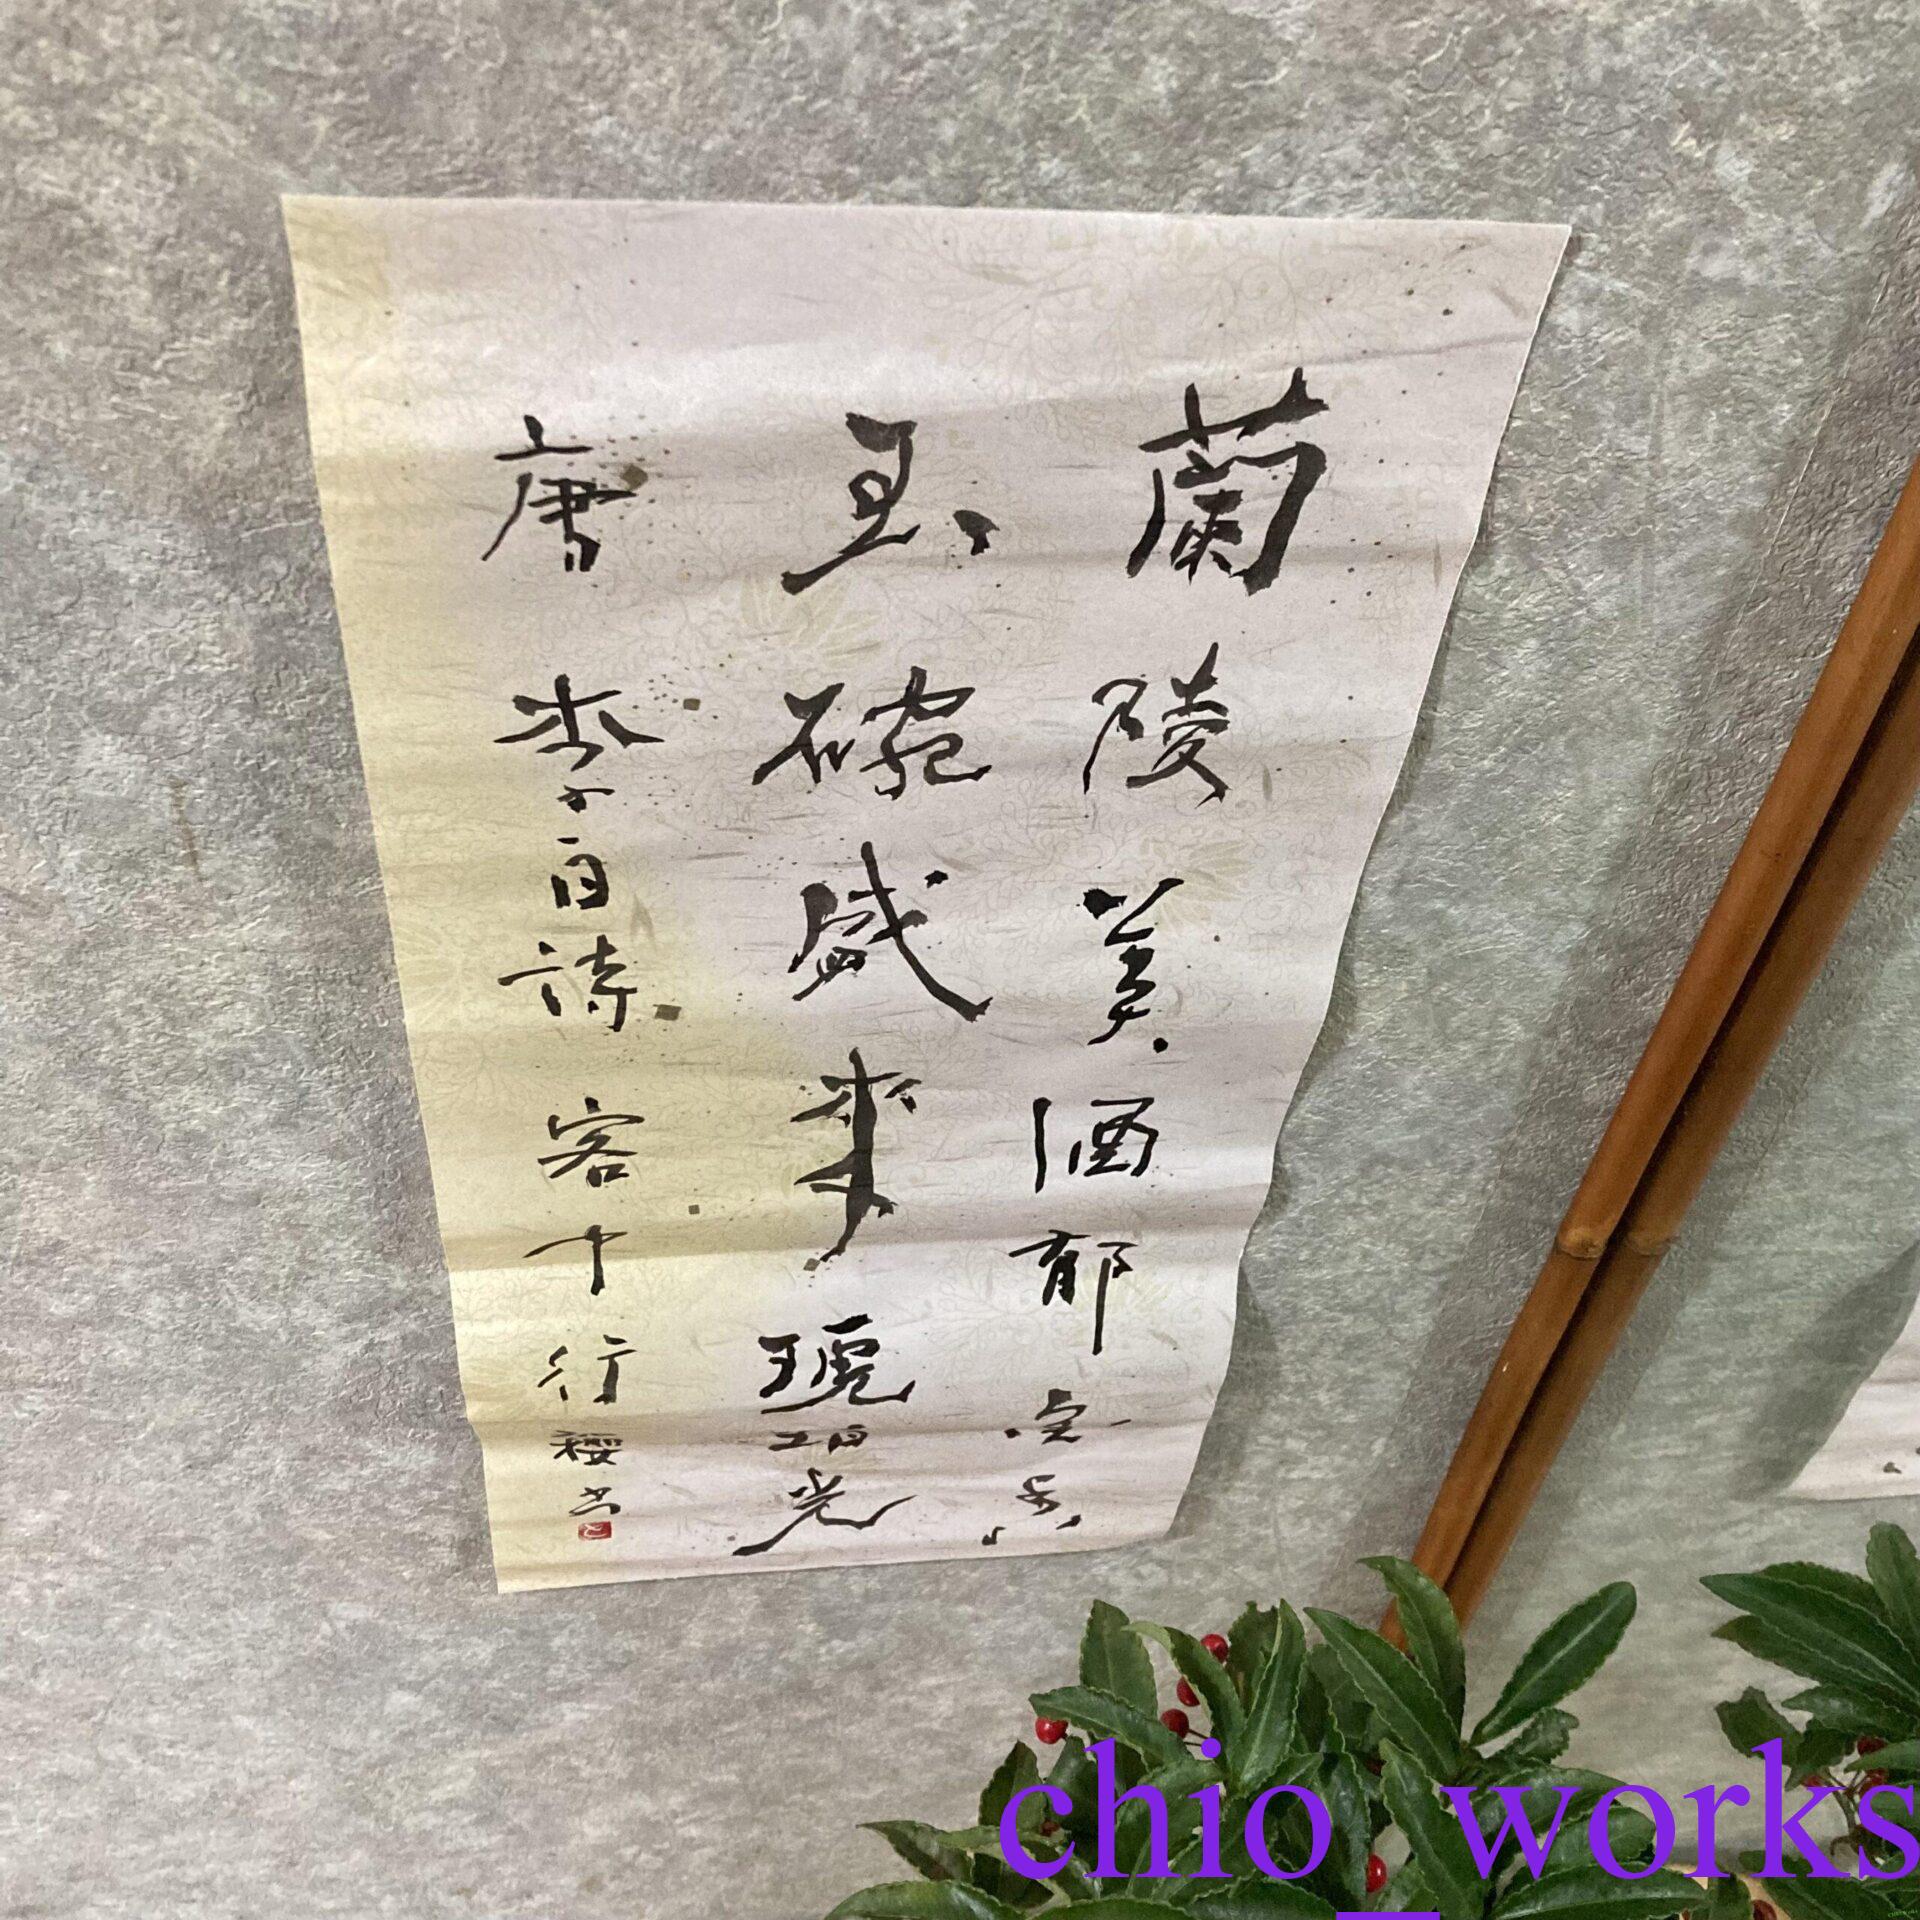 蘭陵美酒郁金香
玉碗盛来琥珀光
唐李白詩客中行櫻书
chio_works